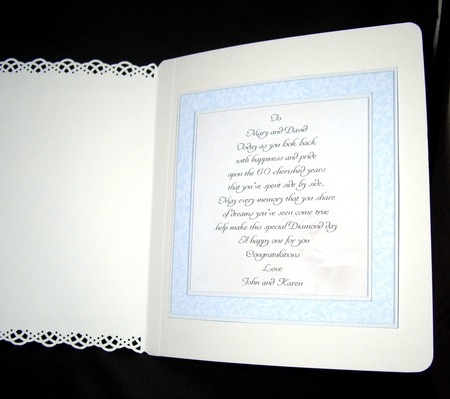 To
Mary and David
Today as you look back
with happiness and pride
upon the 60 cherished years
that you've spent side by side,
May every memory that you share
of dreams you've seen come true
help make this special Diamond day
A happy one for you
Congratulations
Love
John and Karen